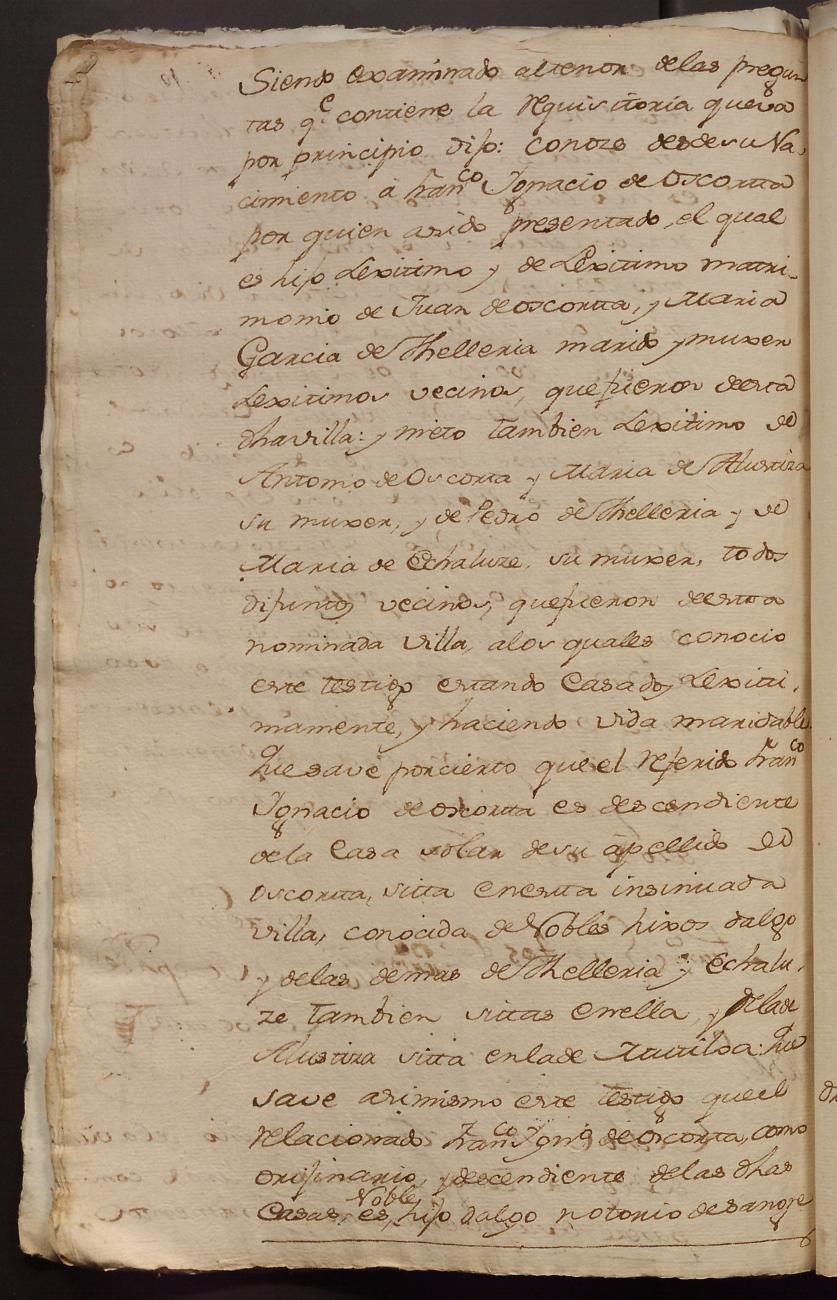 Siendo examinado altenor delas pregun
tas q.e contiene la requisitoria queva
por principio dijo: conoze desdesu Na,
cimiento á Fran.co Ygnacio de Oscortta
por quien asido presentado, el qual
es hijo Lexitimo y de Lexitimo matri-
monio de Juan de oscortta, y Maria
Garcia de Thelleria marido y muxer
Lexitimos vecinos, quefueron deesta
dha villa: y nieto tambien Lexitimo de
Antonio de Oscorta y Maria de Alustiza
su muxer, y de Pedro de Thelleria y de
Maria de Echaluze, su muxer, todos
difuntos vecinos, quefueron deestta
nominada villa, alos quales conocio
este testigo estando Casados Lexiti,
mamente, y haciendo vida maridable.
Que save porcierto que el referido Fran.co
Ygnacio de oscortta es descendiente
dela Casa solar desu apellido de
oscortta, sitta enestta insinuada
villa, conocida de Nobles hixos dalgo
y delas demas de Thelleria y Echalu,
ze tambien sittas enella, y delade
Alustiza sitta enlade Mutiloa: Que
save asimismo este testigo queel
relacionado Fran.co Ygn.o de Oscortta, como
orijinario, y descendiente delas dhas
Casas, es Noble, hijo dalgo notorio desangre